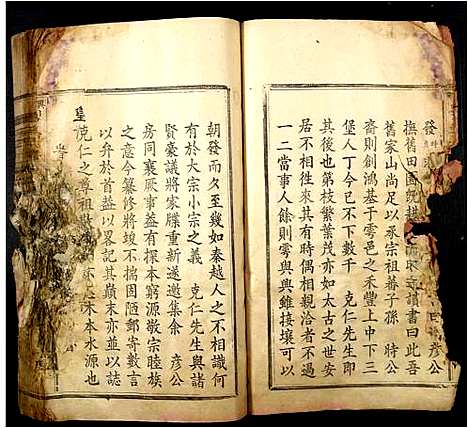 發
撫舊田園說耕
讀書曰此吾
舊家山尚足以承宗祖善子孫 時公
裔則創鴻基于雩邑之禾豐上中下三
堡人丁今已不下數千 克仁先生即
其後也第枝繁葉茂亦如太古之世安
居不相徃來其有時偶相親洽者不過
一二當事人餘則雩與興雖接壤可以
朝發而夕至幾如秦越人之不相識何
有於大宗小宗之義 克仁先生與諸
賢豪議將家牒重新遂邀集余 彥公
房同襄厥事益有探本窮源敬宗睦族
之意今纂修將竣不揣固陋郵寄數言
以弁於首益以畧記其巔末亦並以誌
克仁之尊祖敬
木本水源也
皇